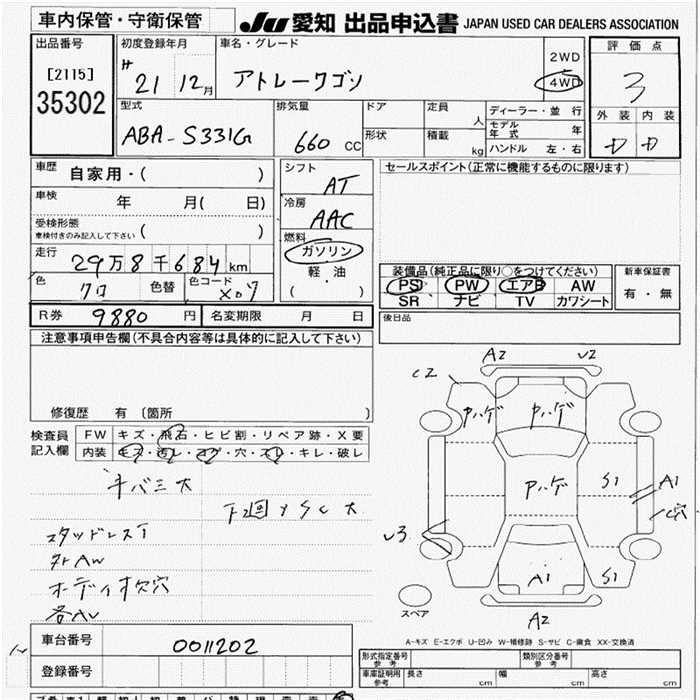 車内保管・守衛保管
JU 愛知 出品申込書 JAPAN USED CAR DEALERS ASSOCIATION
出品番号
[2115]
35302
初度登録年月
H 21 年 12 月
車名・グレード
アトレーワゴン
2WD
4WD
評価点
3
外装 内装
D D
型式
ABA-S331G
排気量
660 CC
ドア
形状
定員 人
積載 kg
ディーラー・並行
モデル年式 年
ハンドル 左・右
車歴
自家用・( )
車検 年 月( 日)
受検形態
車検付きのみ記入して下さい ( )
走行
29万8千684km
色
クロ
色替
色コード
X07
シフト
AT
冷房
AAC
燃料
ガソリン
軽油
( )
セールスポイント(正常に機能するものに限ります)
装備品(純正品に限り○をつけてください)
PS PW エアB AW
SR ナビ TV カワシート
新車保証書
有・無
R券 9880 円 名変期限 月 日
後日品
注意事項申告欄(不具合内容等は具体的に記入して下さい)
修復歴 有 〔箇所 〕
検査員
記入欄
FW キズ・飛石・ヒビ割・リペア跡・X要
内装 キズ・汚レ・コゲ・穴・スレ・キレ・破レ
下回サSC大
スタッドレス
外AW
ボディ
各AU
A2 U2
C2
Pハゲ Pハゲ
Pハゲ
S1
A1
C穴
U3
A1
S1
A2
スペア
A-キズ E-エクボ U-凹み W-補修跡 S-サビ C-腐食 XX-交換済
車台番号
0011202
登録番号
形式指定番号
参考
類別区分番号
参考
車庫証明用
参考
長さ cm 幅 cm 高さ cm